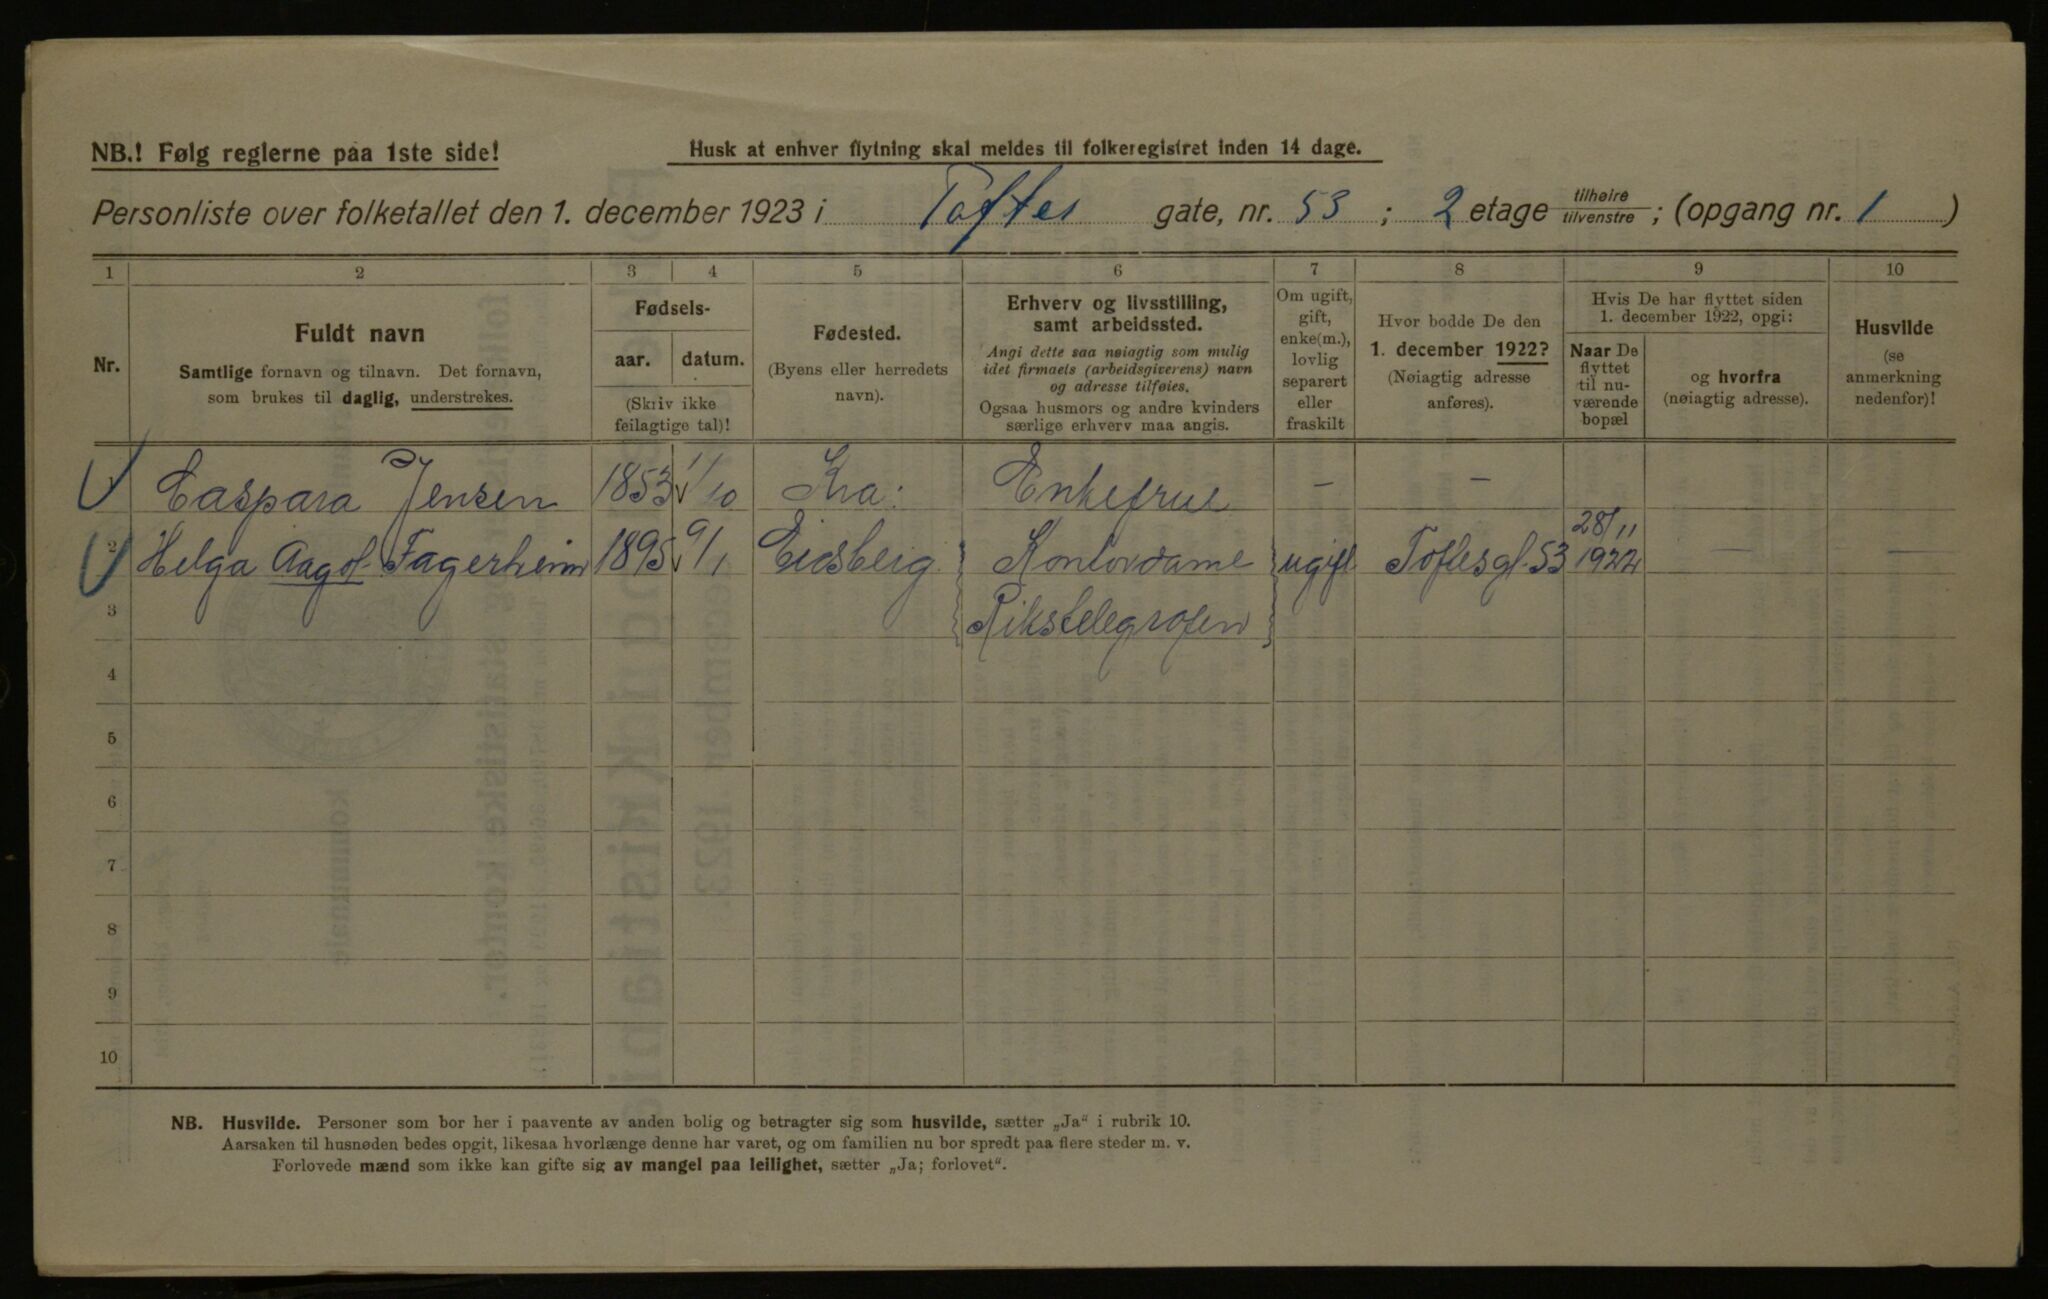 NB.! Følg reglerne paa 1ste side!
Husk at enhver flytning skal meldes til folkeregistret inden 14 dage.
Personliste over folketallet den 1. december 1923 i Toftes gate, nr. 53 ; 2 etage tilhøire tilvenstre ; (opgang nr. 1 )
1 2 3 4 5 6 7 8 9 10
Nr.
Fuldt navn
Samtlige fornavn og tilnavn. Det fornavn,
som brukes til daglig, understrekes.
Fødsels-
aar. datum.
(Skriv ikke
feilagtige tal)!
Fødested.
(Byens eller herredets
navn).
Erhverv og livsstilling,
samt arbeidssted.
Angi dette saa nøiagtig som mulig
idet firmaels (arbeidsgiverens) navn
og adresse tilføies.
Ogsaa husmors og andre kvinders
særlige erhverv maa angis.
Om ugift,
gift,
enke(m.),
lovlig
separert
eller
fraskilt
Hvor bodde De den
1. december 1922?
(Nøiagtig adresse
anføres).
Hvis De har flyttet siden
1. december 1922, opgi:
Naar De
flyttet
til nu-
værende
bopæl
og hvorfra
(nøiagtig adresse).
Husvilde
(se
anmerkning
nedenfor)!
Caspara Jensen 1853 1/10 Kra: Enkefrue — —
2 Helga Aagot Fagerheim 1895 9/1 Eidsberg Kontordame ugift Toftesgt. 53 28/11 1922 — —
3 Rikstelegrafen
4
5
6
7
8
9
10
NB. Husvilde. Personer som bor her i paavente av anden bolig og betragter sig som husvilde, sætter „Ja“ i rubrik 10.
Aarsaken til husnøden bedes opgit, likesaa hvorlænge denne har varet, og om familien nu bor spredt paa flere steder m. v.
Forlovede mænd som ikke kan gifte sig av mangel paa leilighet, sætter „Ja; forlovet“.